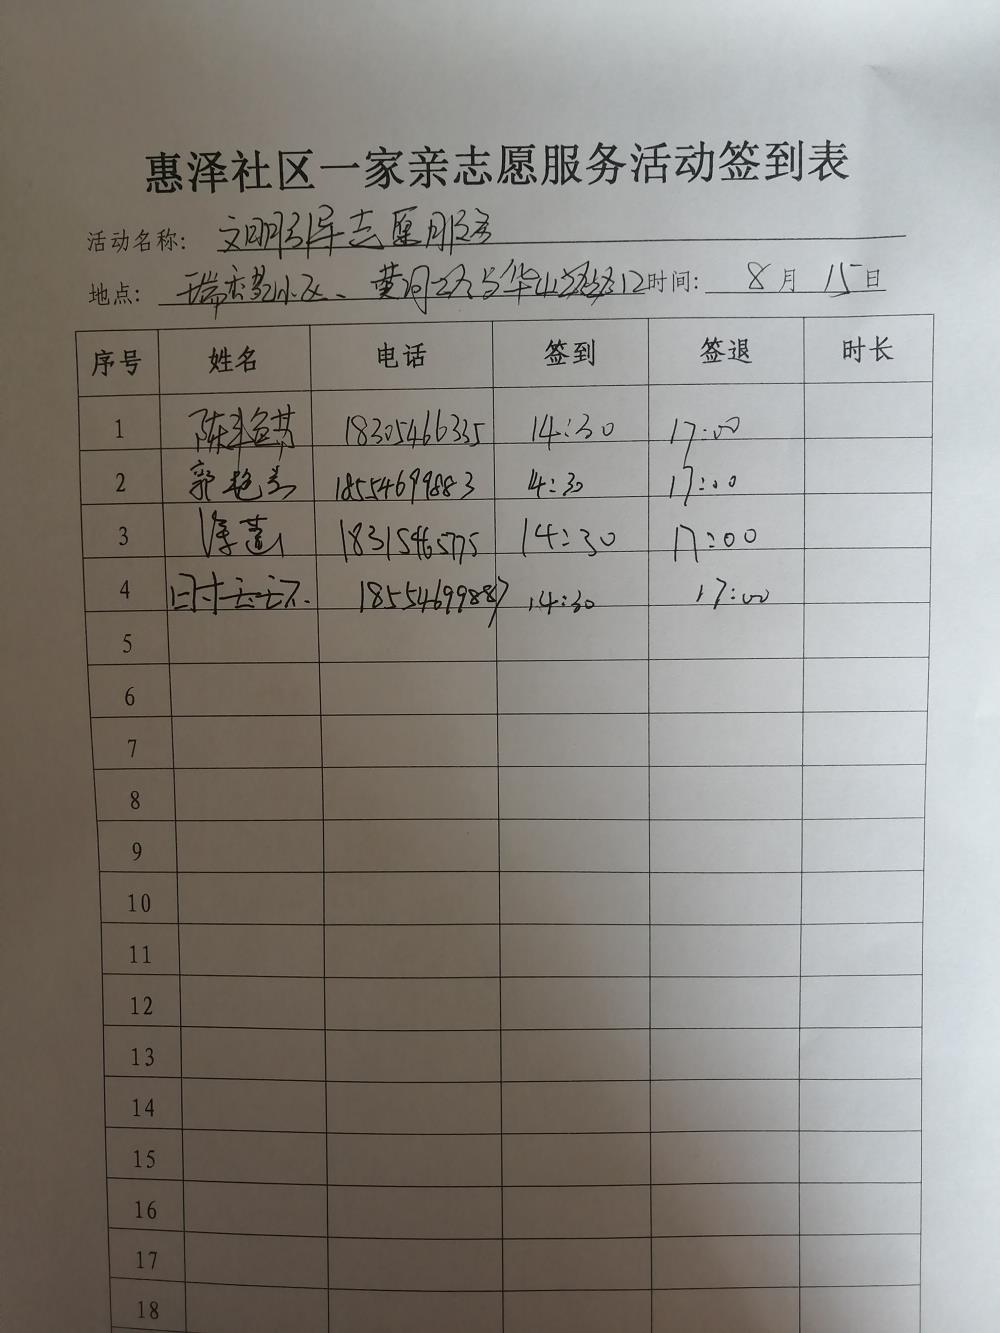 惠泽社区一家亲志愿服务活动签到表
活动名称: 文明引导志愿服务
地点: 小区、黄河路与华山路路口 时间: 8月15日
序号 姓名 电话 签到 签退 时长
1 陈 18305466335 14:30 17:00
2 郭艳 18554699883 14:30 17:00
3 18315465775 14:30 17:00
4 时 18554699887 14:30 17:00
5
6
7
8
9
10
11
12
13
14
15
16
17
18